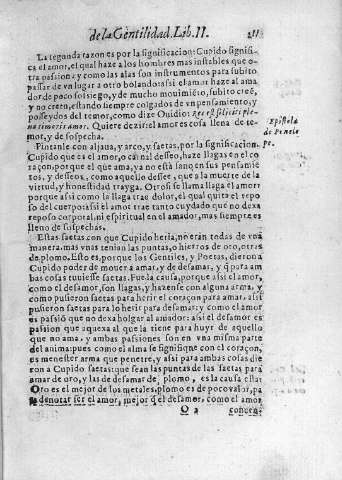 de la Gentilidad. Lib. II. 211
La segunda razon es por la significacion: Cupido signifi-
ca el amor, el qual haze a los hombres mas instables que o-
tra passion: y como las alas son instrumentos para subito
passar de vn lugar a otro bolando: assi el amor haze al ama
dor de poco sosiego, y de mucho mouimiẽto, subito creẽ,
y no creen, estando siempre colgados de vn pensamiento, y
posseydos del temor, como dize Ouidio; Res est soliciti ple-
na timoris amor. Quiere dezir: el amor es cosa llena de te-
mor, y de sospecha.
Epistola
de Penelo
pe.
Pintanle con aljaua, y arco, y saetas, por la significacion.
Cupido que es el amor, o carnal desseo, haze llagas en el co
raçon, porque el que ama, ya no està sano en sus pensamiẽ
tos, y desseos, como aquello dessee, que a la muerte de la
virtud, y honestidad trayga. Otrosi se llama llaga el amor:
porque assi como la llaga trae dolor, el qual quita el repo
so del cuerpo: assi el amor trae tanto cuydado que no dexa
reposo corporal, ni espiritual en el amador, mas siempre es
lleno de sospechas.
Estas saetas, con que Cupido heria, no erã todas de vna
manera, mas vnas tenian las puntas, o hierros de oro, otras
de plomo. Esto es, porque los Gentiles, y Poetas, dieron a
Cupido poder de mouer a amar, y de desamar, y q̃ para am
bas cosas tuuiesse saetas. Fue la causa, porque assi el amor,
como el desamor, son llagas, y hazense con alguna arma, y
como pusieron saetas para herir el coraçon para amar, assi
pusieron saetas para lo herir para desamar: y como el amor
es passiõ que no dexa holgar al amador: assi el desamor es
passion que aquexa al que la tiene para huyr de aquello
que no ama, y ambas passiones son en vna misma parte
del anima: pues como el alma se signifique con el coraçon,
es menester arma que penetre, y assi para ambas cosas die
ron a Cupido saetas: que sean las puntas de las saetas para
amar de oro, y las de desamar de plomo, es la causa el
Oro es el mejor de los metales, plomo es de poco valor, pa
ra denotar ser el amor, mejor q̃ el desamor, como el amor
O 2 concer-